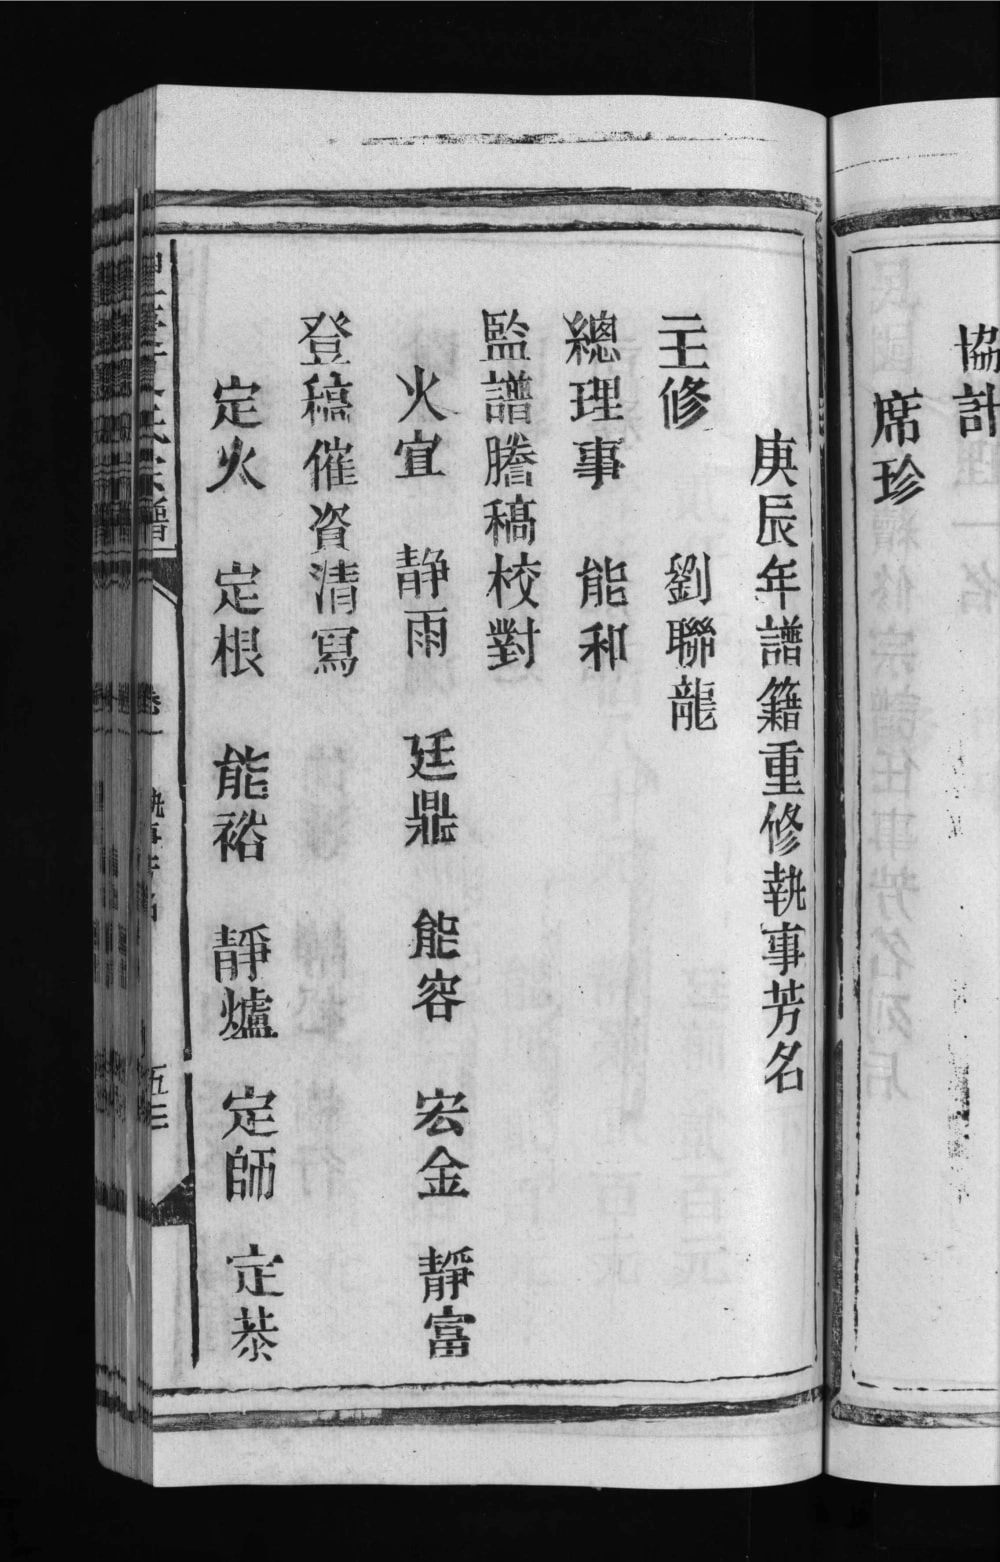 協計
席珍
庚辰年譜籍重修執事芳名
主修　劉聯龍
總理事　能和
監譜謄稿校對
火宜　静雨　廷鼎　能容　宏金　靜富
登稿催資清冩
定火　定根　能裕　靜爐　定師　定恭
卷一
五三